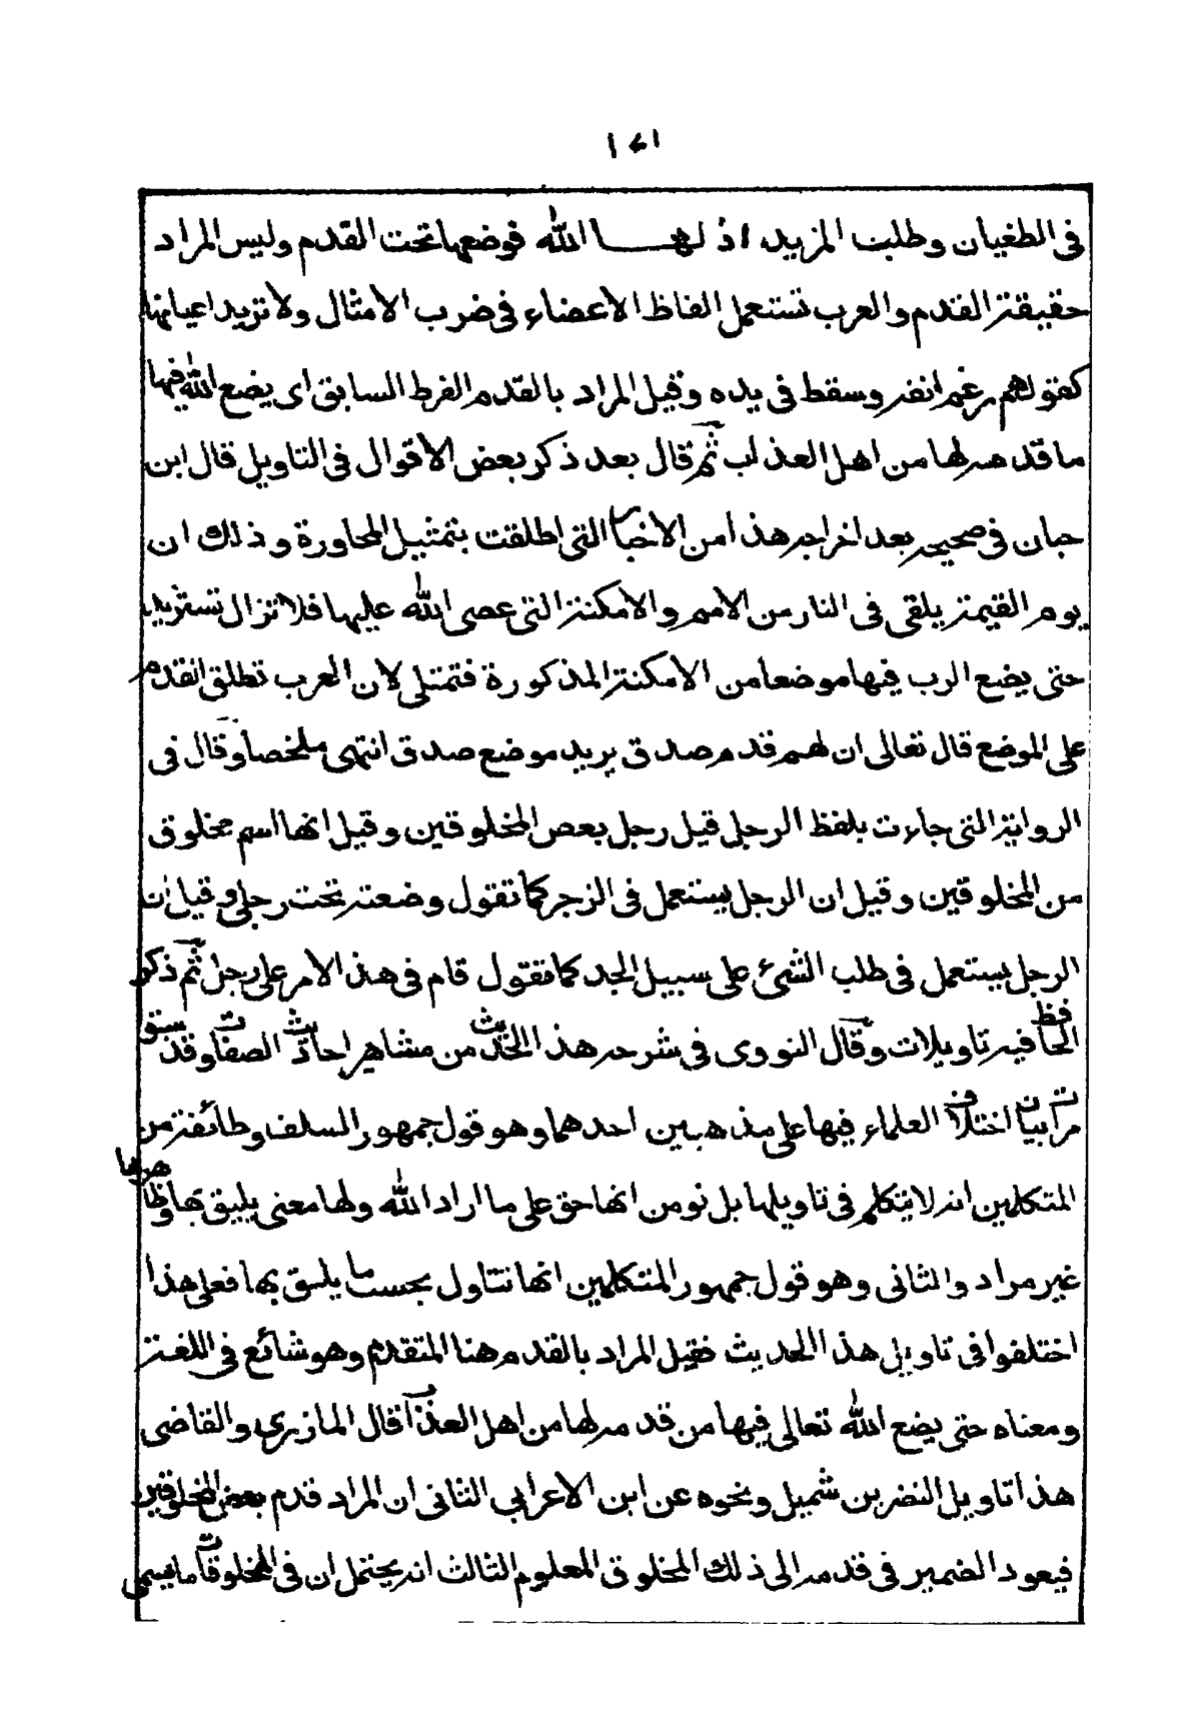 ١٤١
فى الطغيان وطلبت المزيد اذلهـــا الله فوضعها تحت القدم وليس المراد
حقيقة القدم والعرب تستعمل الفاظ الاعضاء فى ضرب الامثال ولا تريد اعيانها
كقولهم رغم انفه وسقط فى يده وقيل المراد بالقدم الفرط السابق اى يضع الله فيها
ما قدمه لها من اهل العذاب ثم قال بعد ذكر بعض الاقوال فى التاويل قال ابن
حبان فى صحيحه بعد اخراجه هذا من الاخبار التى اطلقت بتمثيل المجاورة وذلك ان
يوم القيمة يلقى فى النار من الامم والامكنة التى عصى الله عليها فلا تزال تستزيد
حتى يضع الرب فيها موضعا من الامكنة المذكورة فتمتلى لان العرب تطلق القدم
على الموضع قال تعالى ان لهم قدم صدق يريد موضع صدق انتهى ملخصا وقال فى
الرواية التى جاءت بلفظ الرجل قيل رجل بعض المخلوقين وقيل انها اسم مخلوق
من المخلوقين وقيل ان الرجل يستعمل فى الزجر كما تقول وضعته تحت رجلى وقيل ان
الرجل يستعمل فى طلب الشئ على سبيل الجد كما تقول قام فى هذا الامر على رجل ثم ذكر
الحافظ فيه تاويلات وقال النووى فى شرحه هذا الحديث من مشاهير احاديث الصفات وقد سبق
مرات بيان اختلاف العلماء فيها على مذهبين احدهما وهو قول جمهور السلف وطائفة من
المتكلمين انه لا يتكلم فى تاويلها بل نومن انها حق على ما اراد الله ولها معنى يليق بها وظاهرها
غير مراد والثانى وهو قول جمهور المتكلمين انها تتاول بحسب ما يليق بها فعلى هذا
اختلفوا فى تاويل هذا الحديث فقيل المراد بالقدم هنا المتقدم وهو شائع فى اللغة
ومعناه حتى يضع الله تعالى فيها من قدمه لها من اهل العذاب قال المازرى والقاضى
هذا تاويل النضر بن شميل ونحوه عن ابن الاعرابى الثانى ان المراد قدم بعض المخلوقين
فيعود الضمير فى قدمه الى ذلك المخلوق المعلوم الثالث انه يحتمل ان فى المخلوقات ما يسمى